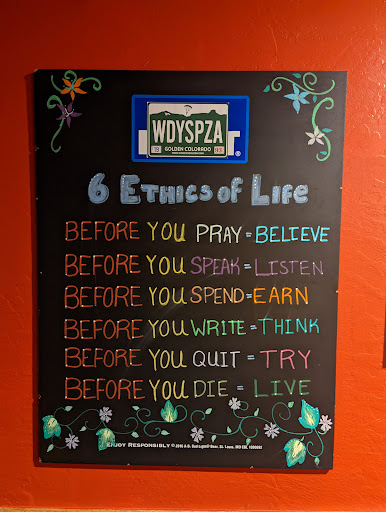 WDYSPZA
GOLDEN COLORADO
6 ETHICS OF LIFE
BEFORE YOU PRAY = BELIEVE
BEFORE YOU SPEAK = LISTEN
BEFORE YOU SPEND = EARN
BEFORE YOU WRITE = THINK
BEFORE YOU QUIT = TRY
BEFORE YOU DIE = LIVE
ENJOY RESPONSIBLY © A-B, Bud Light® Beer, St. Louis, MO